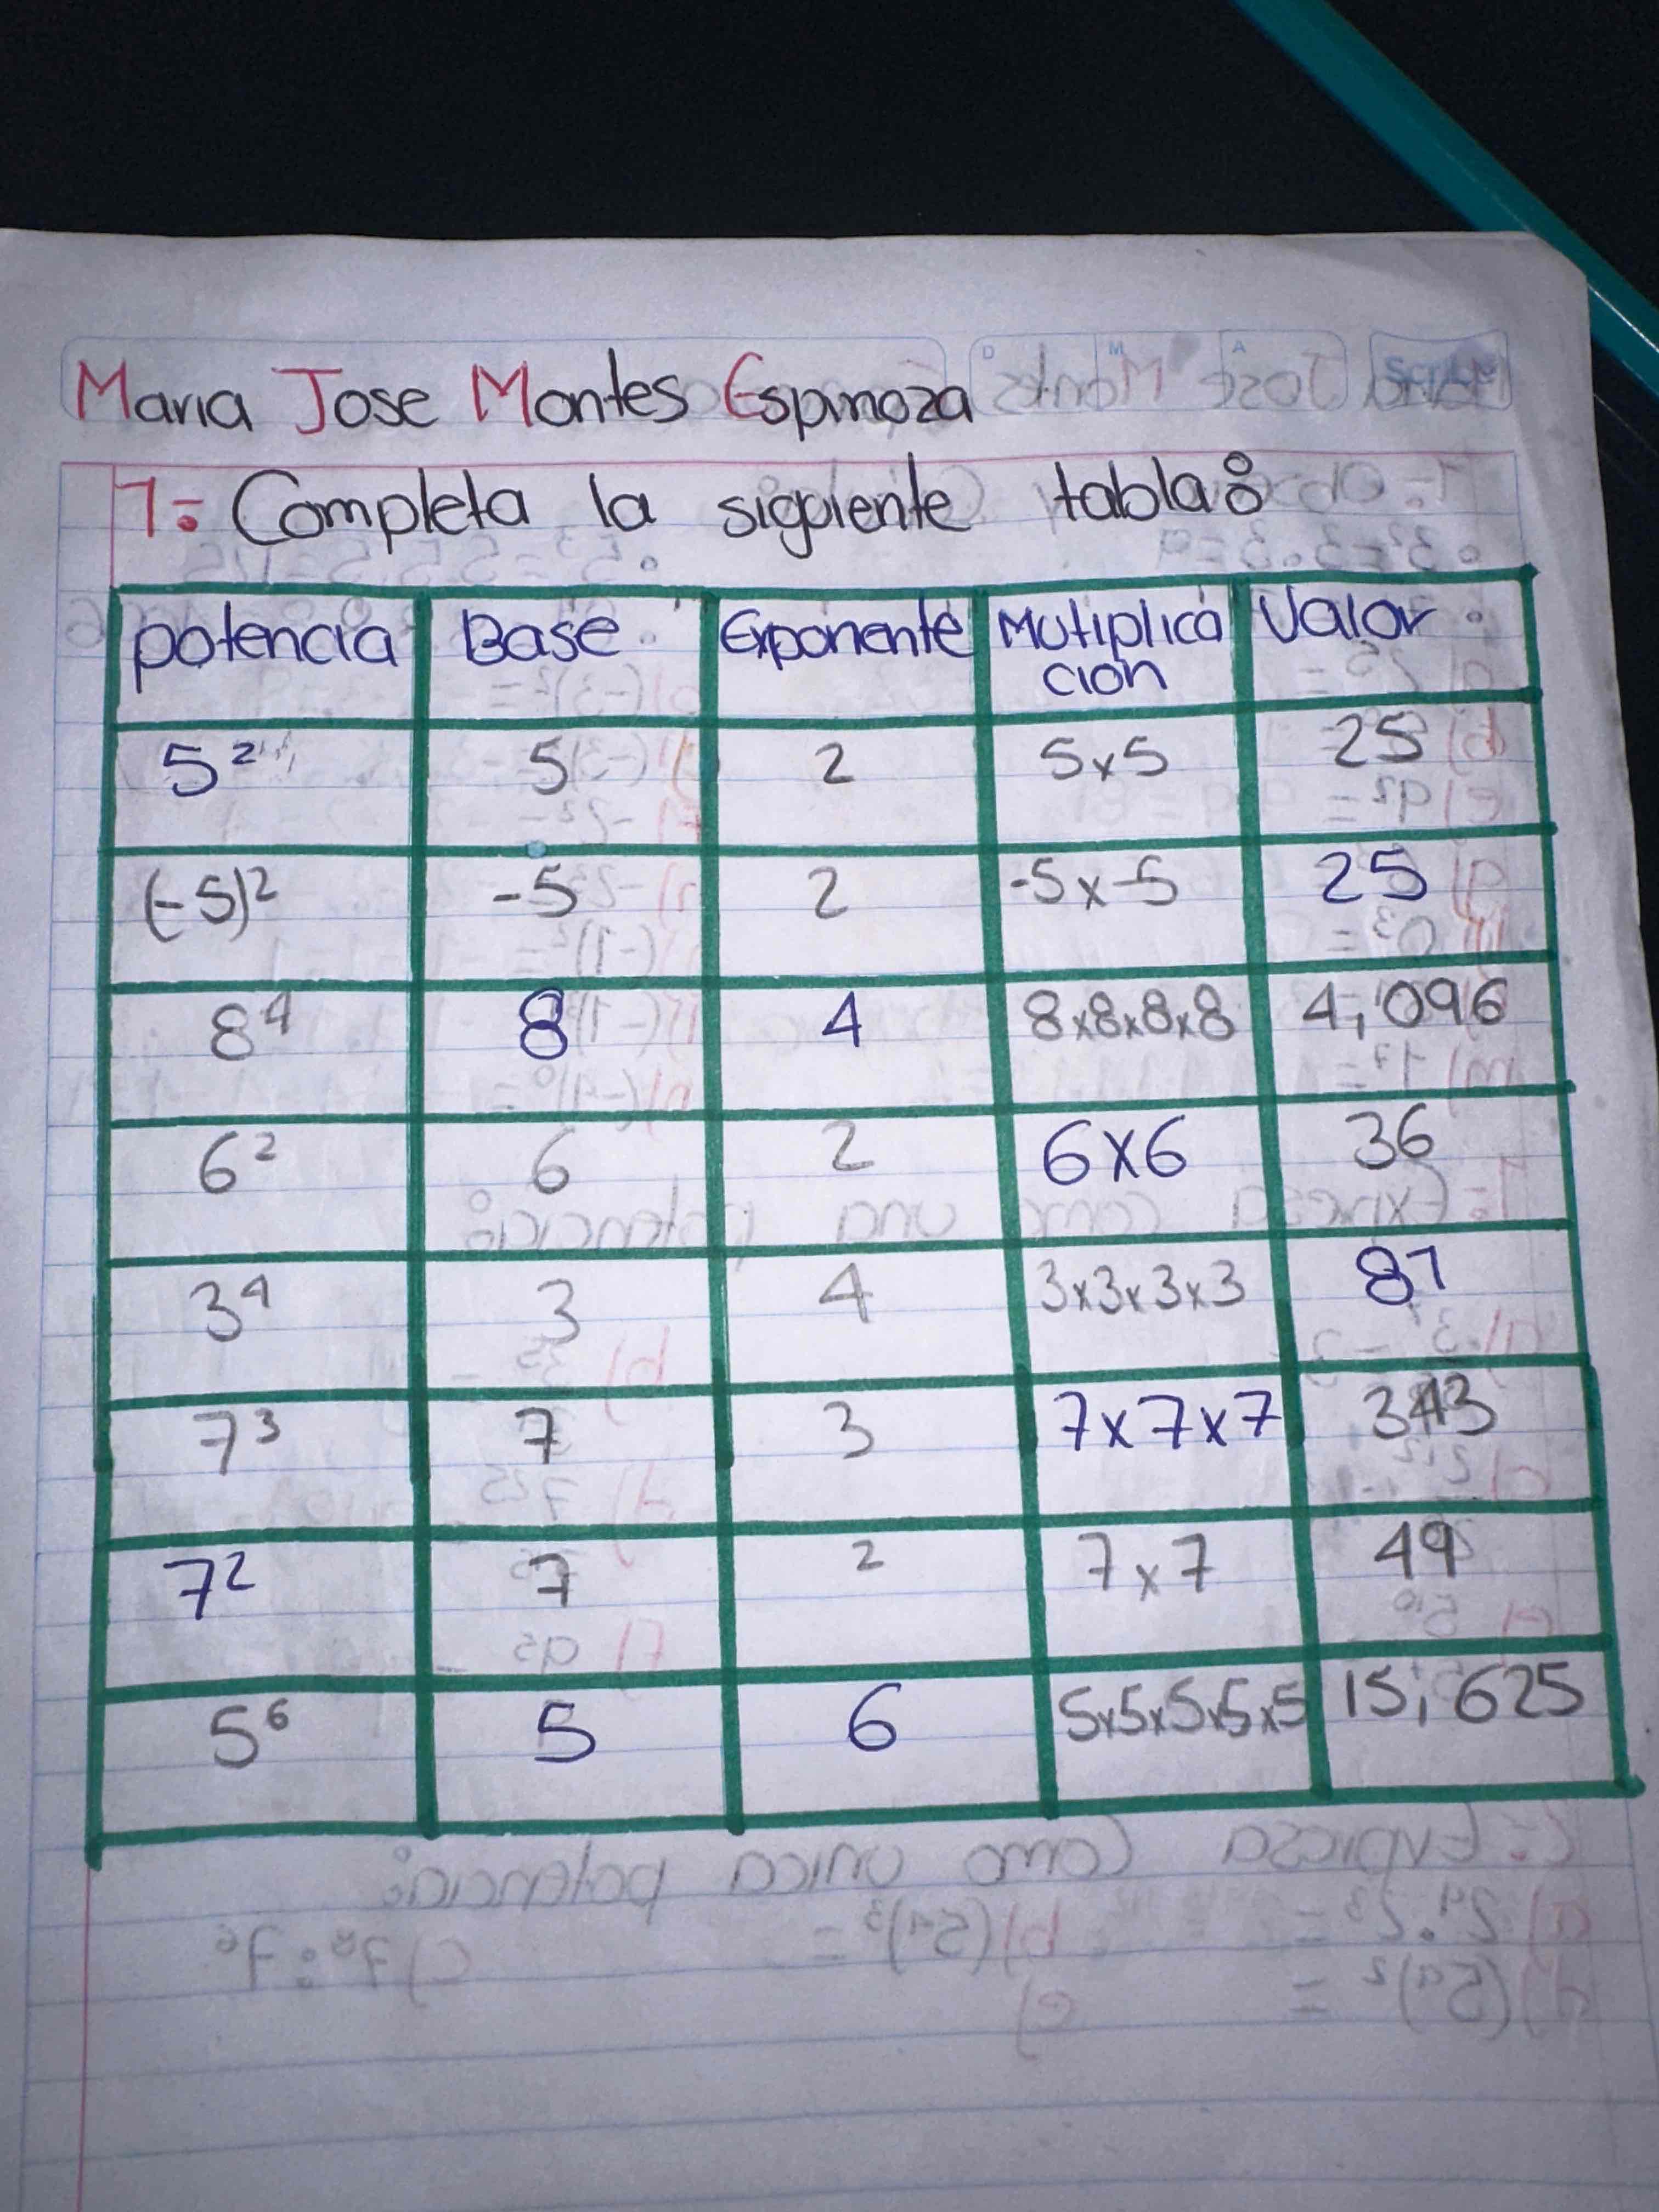 Maria Jose Montes Espinoza
D M A Scribe
1= Completa la siguiente tabla:
potencia Base Exponente Mutiplica Valor
cion
5² 5 2 5x5 25
(-5)² -5 2 -5x-5 25
8⁴ 8 4 8x8x8x8 4,096
6² 6 2 6x6 36
3⁴ 3 4 3x3x3x3 81
7³ 7 3 7x7x7 343
7² 7 2 7x7 49
5⁶ 5 6 5x5x5x5x5 15,625